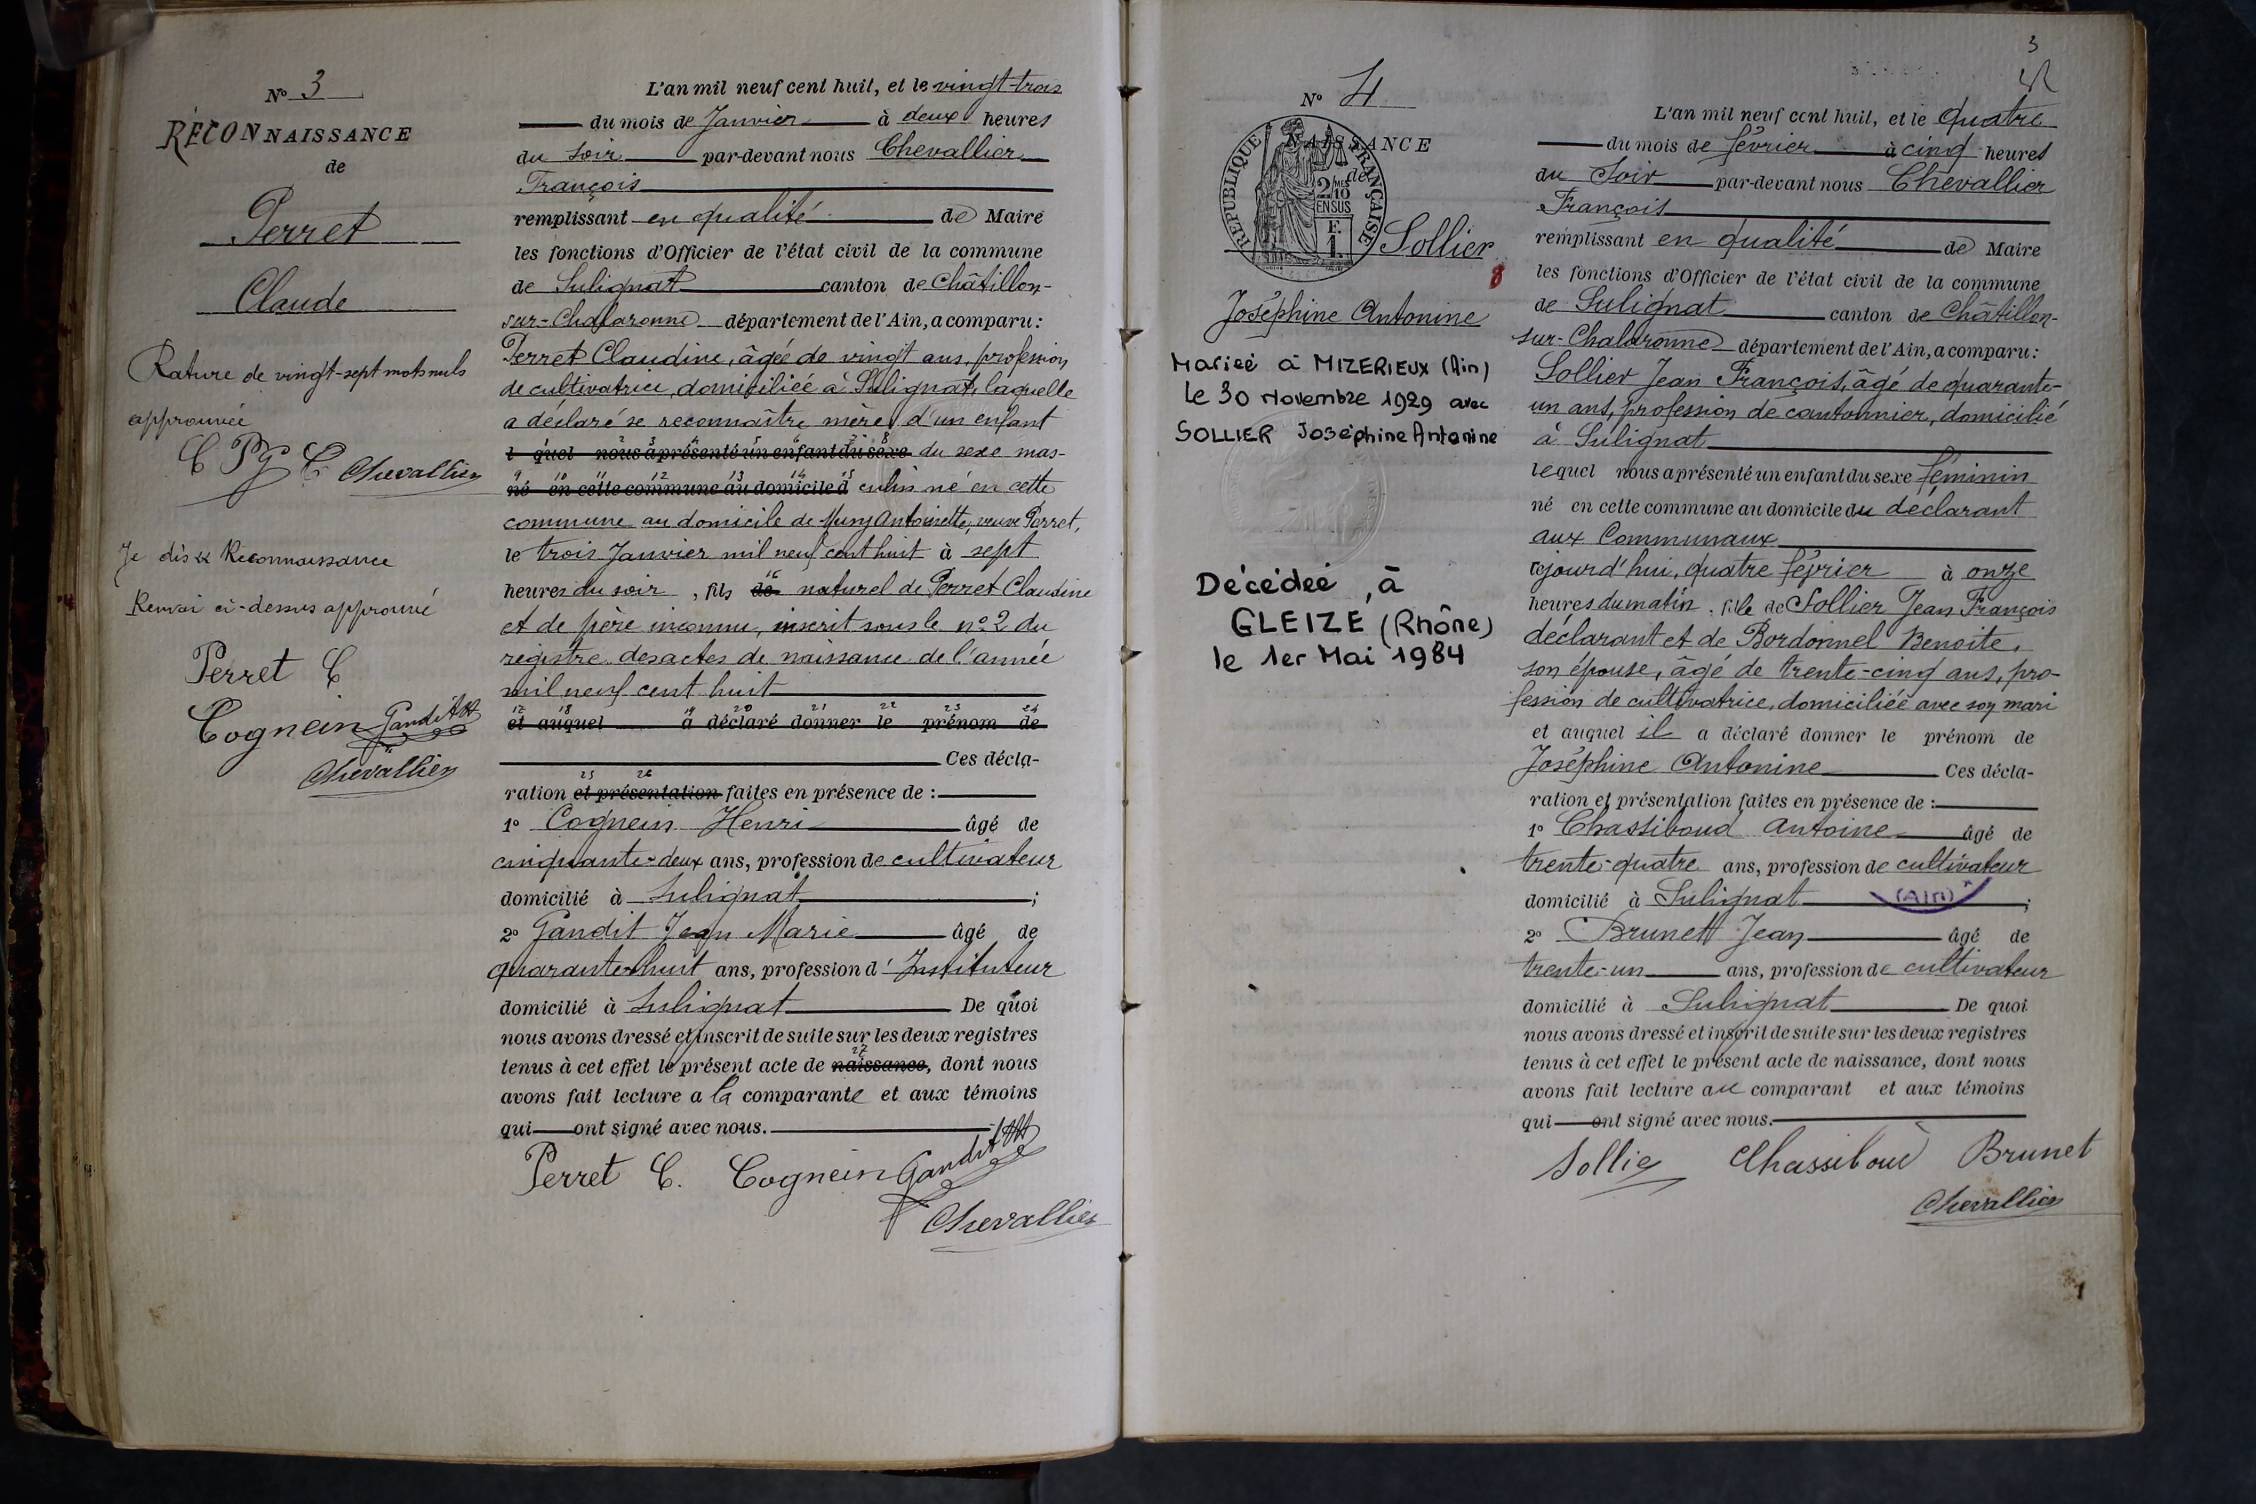 N° 3
RECONNAISSANCE
de
Perret
Claude
Rature de vingt-sept mots nuls
approuvée
C P G C Chevallier
Je dis « Reconnaissance
Renvoi ci-dessus approuvé
Perret C
Cognein Gandit
Chevallier
L'an mil neuf cent huit, et le vingt-trois
du mois de Janvier à deux heures
du soir par-devant nous Chevallier
François
remplissant en qualité de Maire
les fonctions d'Officier de l'état civil de la commune
de Sulignat canton de Châtillon-
sur-Chalaronne département de l'Ain, a comparu:
Perret Claudine, âgée de vingt ans, profession
de cultivatrice, domiciliée à Sulignat, laquelle
a déclaré se reconnaître mère d'un enfant
l quel nous a présenté un enfant du sexe du sexe mas-
né en cette commune au domicile d culin né en cette
commune au domicile de Mury Antoinette, veuve Perret,
le trois Janvier mil neuf cent huit à sept
heures du soir, fils de naturel de Perret Claudine
et de père inconnu, inscrit sous le n° 2 du
registre des actes de naissance de l'année
mil neuf cent huit
17 18 19 20 21 22 23 24
et auquel a déclaré donner le prénom de
Ces décla-
25 26
ration et présentation faites en présence de :
1° Cognein Henri âgé de
cinquante-deux ans, profession de cultivateur
domicilié à Sulignat ;
2° Gandit Jean Marie âgé de
quarante-huit ans, profession d'Instituteur
domicilié à Sulignat De quoi
nous avons dressé et inscrit de suite sur les deux registres
27
tenus à cet effet le présent acte de naissance, dont nous
avons fait lecture a la comparante et aux témoins
qui ont signé avec nous.
Perret C. Cognein Gandit
Chevallier
3
N° 4
NAISSANCE
de
RÉPUBLIQUE FRANÇAISE
2/10 MES
EN SUS
F.
1.
Sollier
8
Joséphine Antonine
Mariée à MIZERIEUX (Ain)
le 30 Novembre 1929 avec
SOLLIER Joséphine Antonine
Décédée, à
GLEIZE (Rhône)
le 1er Mai 1984
L'an mil neuf cent huit, et le quatre
du mois de février à cinq heures
du Soir par-devant nous Chevallier
François
remplissant en qualité de Maire
les fonctions d'Officier de l'état civil de la commune
de Sulignat canton de Châtillon-
sur-Chalaronne département de l'Ain, a comparu:
Sollier Jean François, âgé de quarante-
un ans, profession de cantonnier, domicilié
à Sulignat
lequel nous a présenté un enfant du sexe féminin
né en cette commune au domicile du déclarant
aux Communaux
cejourd'hui, quatre février à onze
heures du matin, fille de Sollier Jean François
déclarant et de Bordonnel Benoite,
son épouse, âgé de trente-cinq ans, pro-
fession de cultivatrice, domiciliée avec son mari
et auquel il a déclaré donner le prénom de
Joséphine Antonine Ces décla-
ration et présentation faites en présence de :
1° Chassiboud Antoine âgé de
trente-quatre ans, profession de cultivateur
domicilié à Sulignat ;
(Ain)
2° Brunet Jean âgé de
trente-un ans, profession de cultivateur
domicilié à Sulignat De quoi
nous avons dressé et inscrit de suite sur les deux registres
tenus à cet effet le présent acte de naissance, dont nous
avons fait lecture au comparant et aux témoins
qui ont signé avec nous.
Sollier Chassiboud Brunet
Chevallier